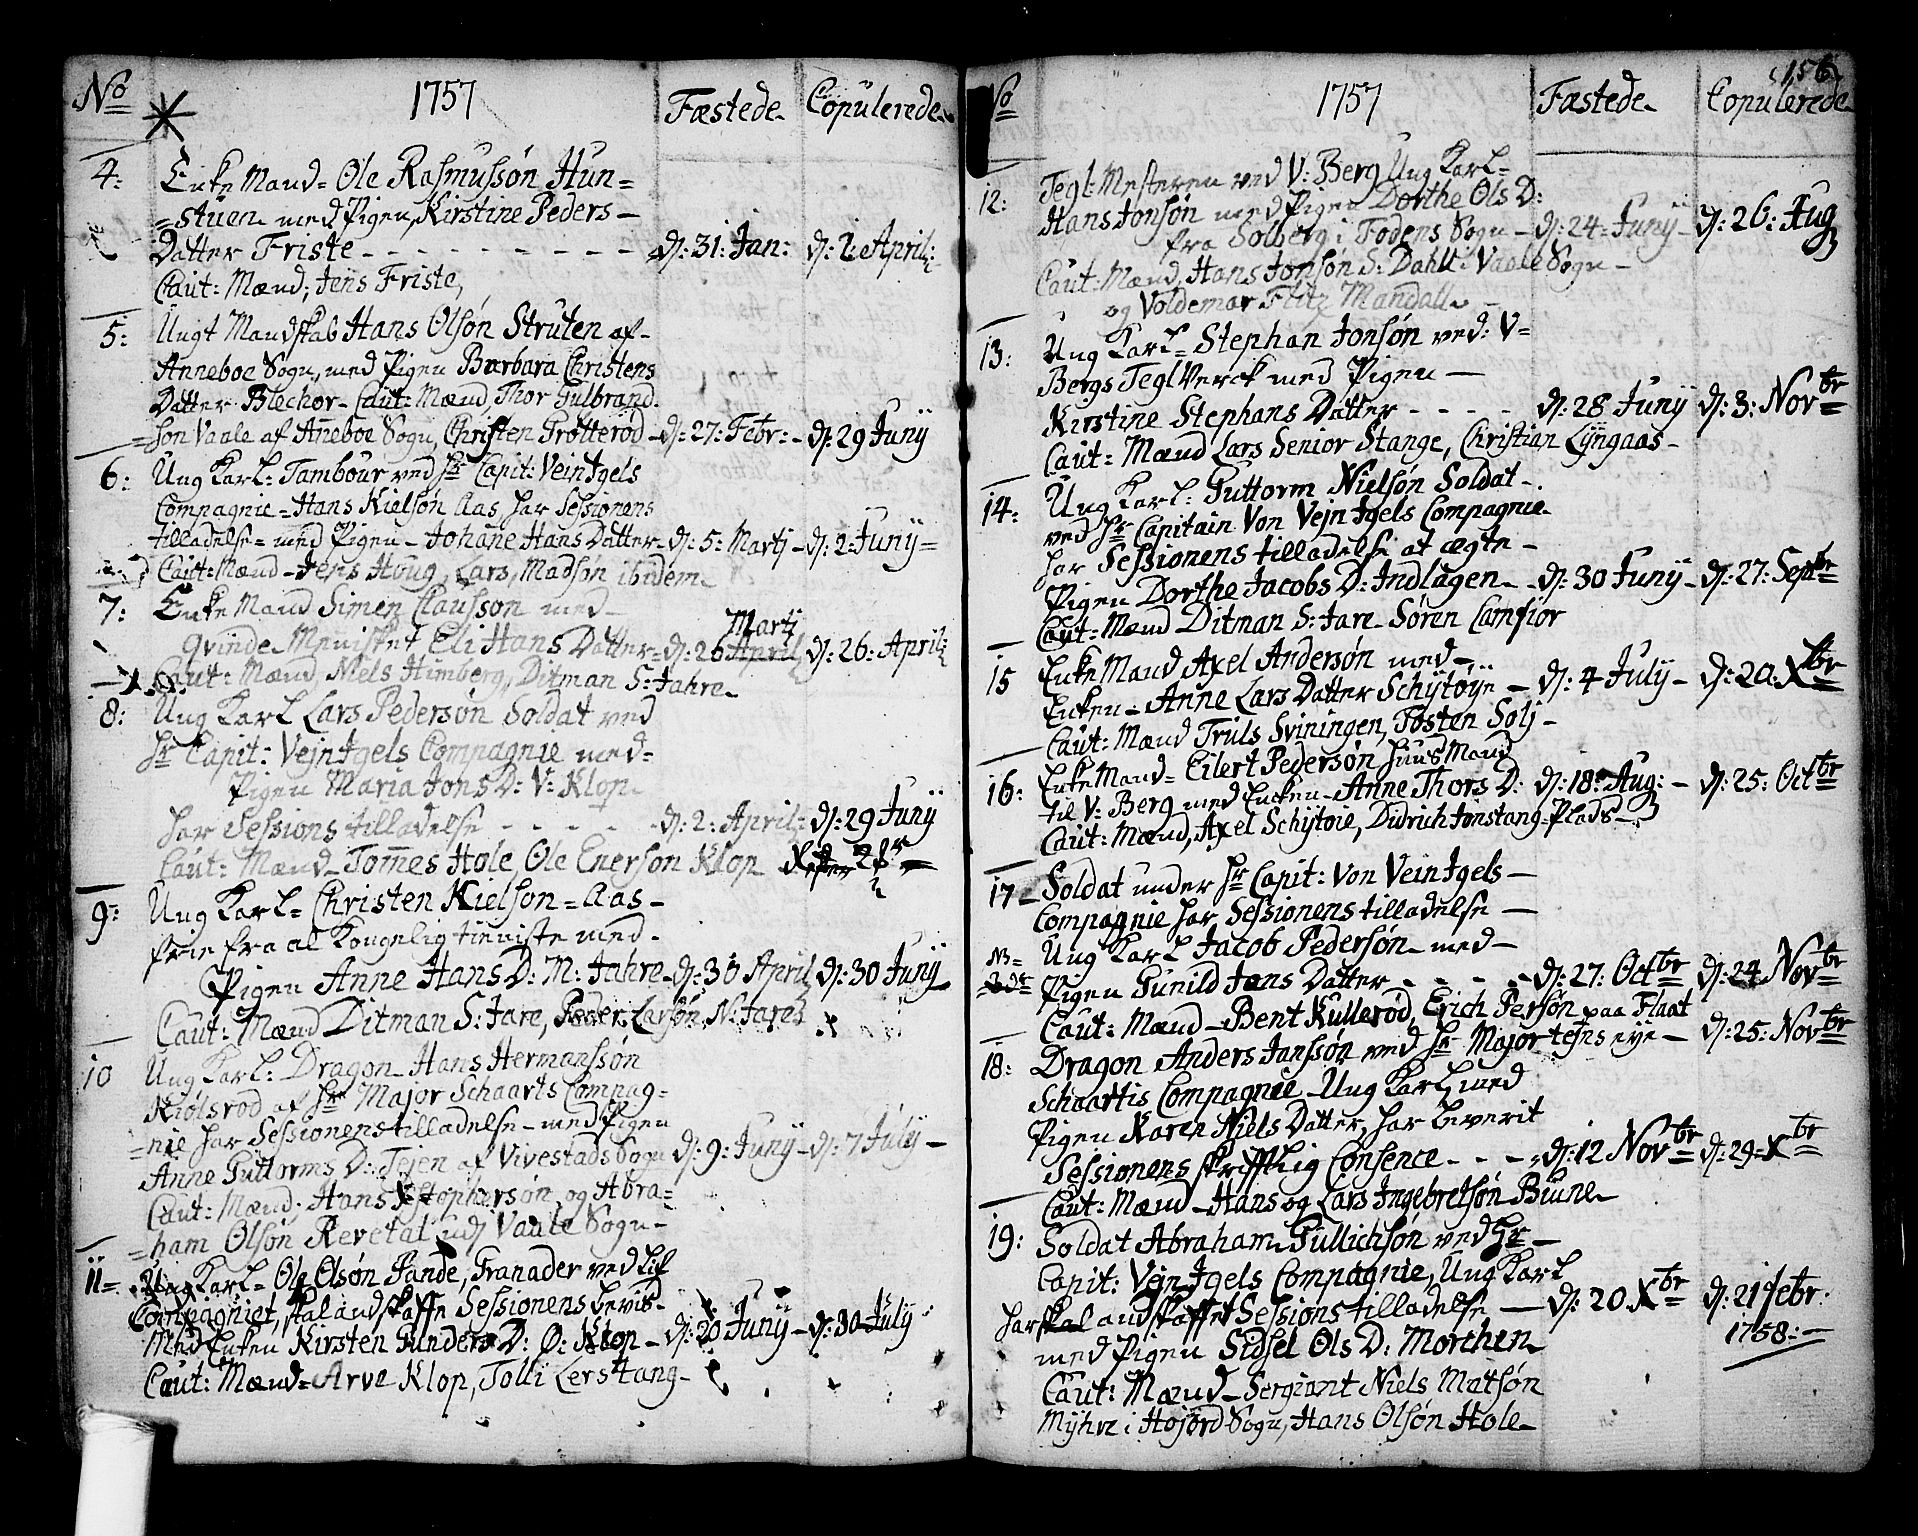 No 1757 Fæstede Copulerede
4: Enke Mand= Ole Rasmussøn Hun=
=stuen med Pigen, Kirstine Peders-
Datter Friste - - - - - - - - - d: 31: Jan: d: 2 April:
Caut: Mænd; Jens Friste,
5: Ungt Mandskab Hans Olsøn Struten af-
Anneboe Sogn, med Pigen Barbara Christens
Datter Blechor- Caut: Mænd, Thor Gulbrand
=søn Vaale af Anneboe Sogn, Christen Grøtterød - d: 27: Febr: - d: 29 Junÿ
6: Ung Karl: Tambour ved Hr Capit: VeinJgels
Compagnie= Hans Nielsøn Aas har Sessionens
tilladelse= med Pigen - Johane Hans Datter- d: 5: Martj - d: 2: Junÿ=
Caut: Mænd - Jens Houg, Lars, Madsøn ibidem-
7: Enke Mand Simen Claussøn med-
Martj
Qvinde Mennisket Eli Hans Datter- d: 26 April d: 26: April:
Caut: Mænd, Niels Himberg, Ditman S: Jahre-
8: Ung Karl Lars Pedersøn Soldat ved
Hr Capit: VejnJgels Compagnie med=
Pigen Maria Jons D: V: Klop-
har Sessions tilladelse - - - - - - d: 2: April: d: 29 Junÿ
Caut: Mænd- Tom̅es Hole, Ole Enersøn Klop
9: Ung Karl= Christen Nielsøn= Aas-
frie fra al Kongelig tieniste med-
Pigen Anne Hans D: N: Jahre- d: 30 April d: 30 Junÿ
Caut: Mænd Ditman S: Jare, Peder Larsøn N: Jare
10 Ung Karl: Dragon- Hans Hermanssøn
Kiølsrød af Hr Major Schaarts Compag=
=nie har Sessionens tilladelse- med Pigen
Anne Guttorms D: Tejen af Vivestad Sogn d: 9: Junÿ - d: 7 Julÿ -
Caut: Mænd. Hans Xstophersøn, og Abra=
=ham Olsøn Revetal udj Vaale Sogn-
11= Ung Karl= Ole Olsøn Sande, Granader ved Lif
Compagniet, skal andskaffe Sessionens bevis-
Med Enken Kirsten Gunders D: Ø: Klop - d: 20 Junÿ - d: 30 Julÿ
Caut: Mænd= Arve Klop, Tolli Lerstang-
156
No 1757 Fæstede Copulerede
12: Tegl: Mesteren ved V: Berg Ung Karl-
Hans Jonsøn med Pigen Dorthe Ols D:
fra Solberg i Fodens Sogn - d: 24: Junÿ - d: 26: Aug
Caut: Mænd, Hans Jonsøn S: Dahl i Vaale Sogn -
og Voldemar Flitz Mandall -
13: Ung Karl= Stephan Jonsøn ved: V-
Bergs Tegl Verck med Pigen -
Kirstine Stephans Datter - - - - d: 28 Junÿ d: 3: Novbr
Caut: Mænd Lars Senior Stange, Christian Lÿngaas-
14: Ung Karl: Guttorm Nielsøn Soldat-
ved Hr Capitain Von VejnJgels Compagnie-
har Sessionens tilladelse at ægte -
Pigen Dorthe Jacobs D: Indlagen- d: 30 Junÿ - d: 27: Septbr
Caut: Mænd Ditman S: Jare- Søren Camfior
15 Enke Mand Axel Andersøn med-
Enken- Anne Lars Datter Schÿtøÿe - d: 4 Julÿ - d: 20: Xbr
Caut: Mænd Truls Sviningen, Tosten Solj-
16: Enke Mand= Eilert Pedersøn Huus Mand
til V: Berg med Encken- Anne Thors D: d: 18: Aug: - d: 25: Octbr
Caut: Mænd, Axel Schÿtøie, Didrich Jonstang-Plads-
17- Soldat under Hr Capit: Von VeinJgels-
Compagnie har Sessionens tilladelse -
NB= Ung Karl Jacob Pedersøn- med -
Pigen Gunild Jans Datter- - - - d: 27: Octbr d: 24 Novbr
Caut: Mænd- Bent Kullerød, Erich Persøn paa Flaat
18: Dragon Anders Janssøn ved Hr Major tejns eye - d: 25: Novbr
Schaartis Compagnie- Ung Karl, med
Pigen Karen Niels Datter, har leverit
Sessionens skrifftlig Consence- - - - d: 12 Novbr d: 29: Xbr
Caut: Mænd- Hans og Lars Ingebretsøn Biune-
19: Soldat Abraham Gullichsøn ved Hr-
Capit: VejnJgels Compagnie, Ung Karl
har skal andskaffet Sessions tilladelse - d: 20 Xbr d: 21 febr:
1758: -
med Pigen Sidsel Ols D: Morchen-
Caut: Mænd- Sergiant Niels Matsøn
Mÿhre i Høijord Sogn, Hans Olsøn Hole-